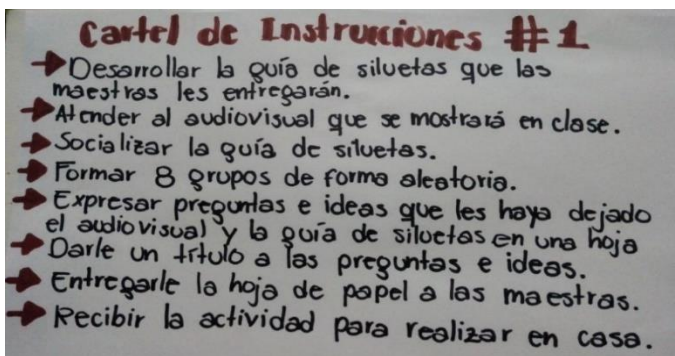 Cartel de Instrucciones #1
→ Desarrollar la guía de siluetas que las
maestras les entregarán.
→ Atender al audiovisual que se mostrará en clase.
→ Socializar la guía de siluetas.
→ Formar 8 grupos de forma aleatoria.
→ Expresar preguntas e ideas que les haya dejado
el audiovisual y la guía de siluetas en una hoja
→ Darle un título a las preguntas e ideas.
→ Entregarle la hoja de papel a las maestras.
→ Recibir la actividad para realizar en casa.